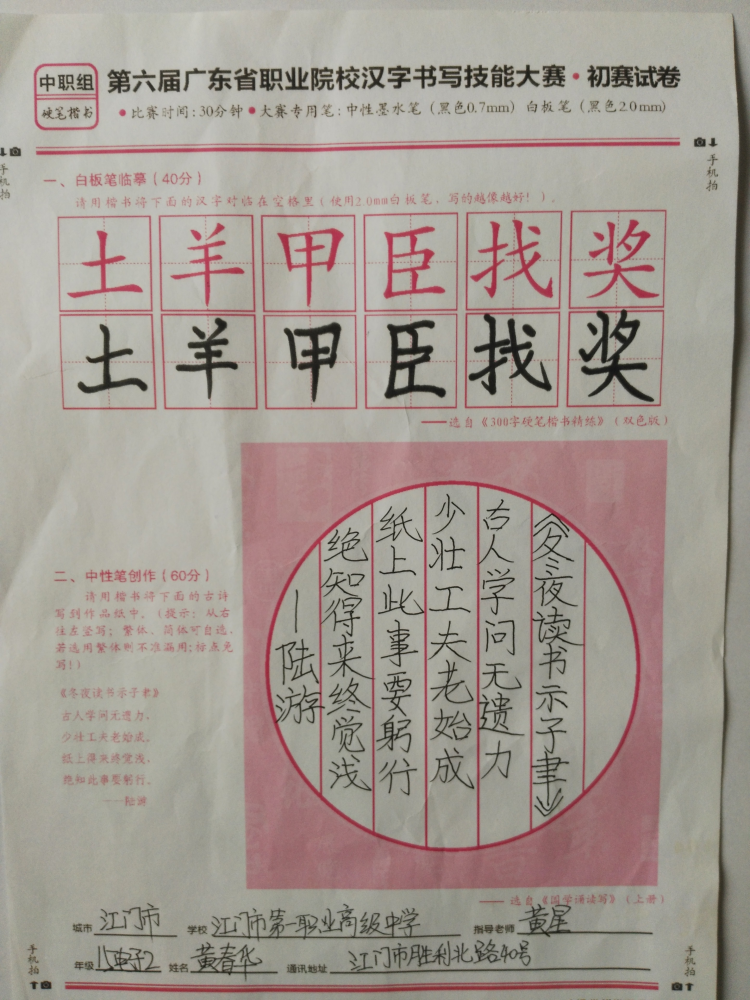 中职组
硬笔楷书
第六届广东省职业院校汉字书写技能大赛·初赛试卷
●比赛时间:30分钟●大赛专用笔:中性墨水笔(黑色0.7mm) 白板笔(黑色2.0mm)
手机拍
手机拍
一、白板笔临摹(40分)
请用楷书将下面的汉字对临在空格里(使用2.0mm白板笔,写的越像越好!)。
土羊甲臣找奖
土羊甲臣找奖
——选自《300字硬笔楷书精练》(双色版)
二、中性笔创作(60分)
请用楷书将下面的古诗
写到作品纸中。(提示:从右
往左竖写;繁体、简体可自选,
若选用繁体则不准漏用;标点免
写!)
《冬夜读书示子聿》
古人学问无遗力,
少壮工夫老始成。
纸上得来终觉浅,
绝知此事要躬行。
——陆游
《冬夜读书示子聿》
古人学问无遗力
少壮工夫老始成
纸上此事要躬行
绝知得来终觉浅
—陆游
——选自《国学诵读写》(上册)
城市 江门市 学校 江门市第一职业高级中学 指导老师 黄星
年级 15电子2 姓名 黄春华 通讯地址 江门市胜利北路40号
手机拍
手机拍